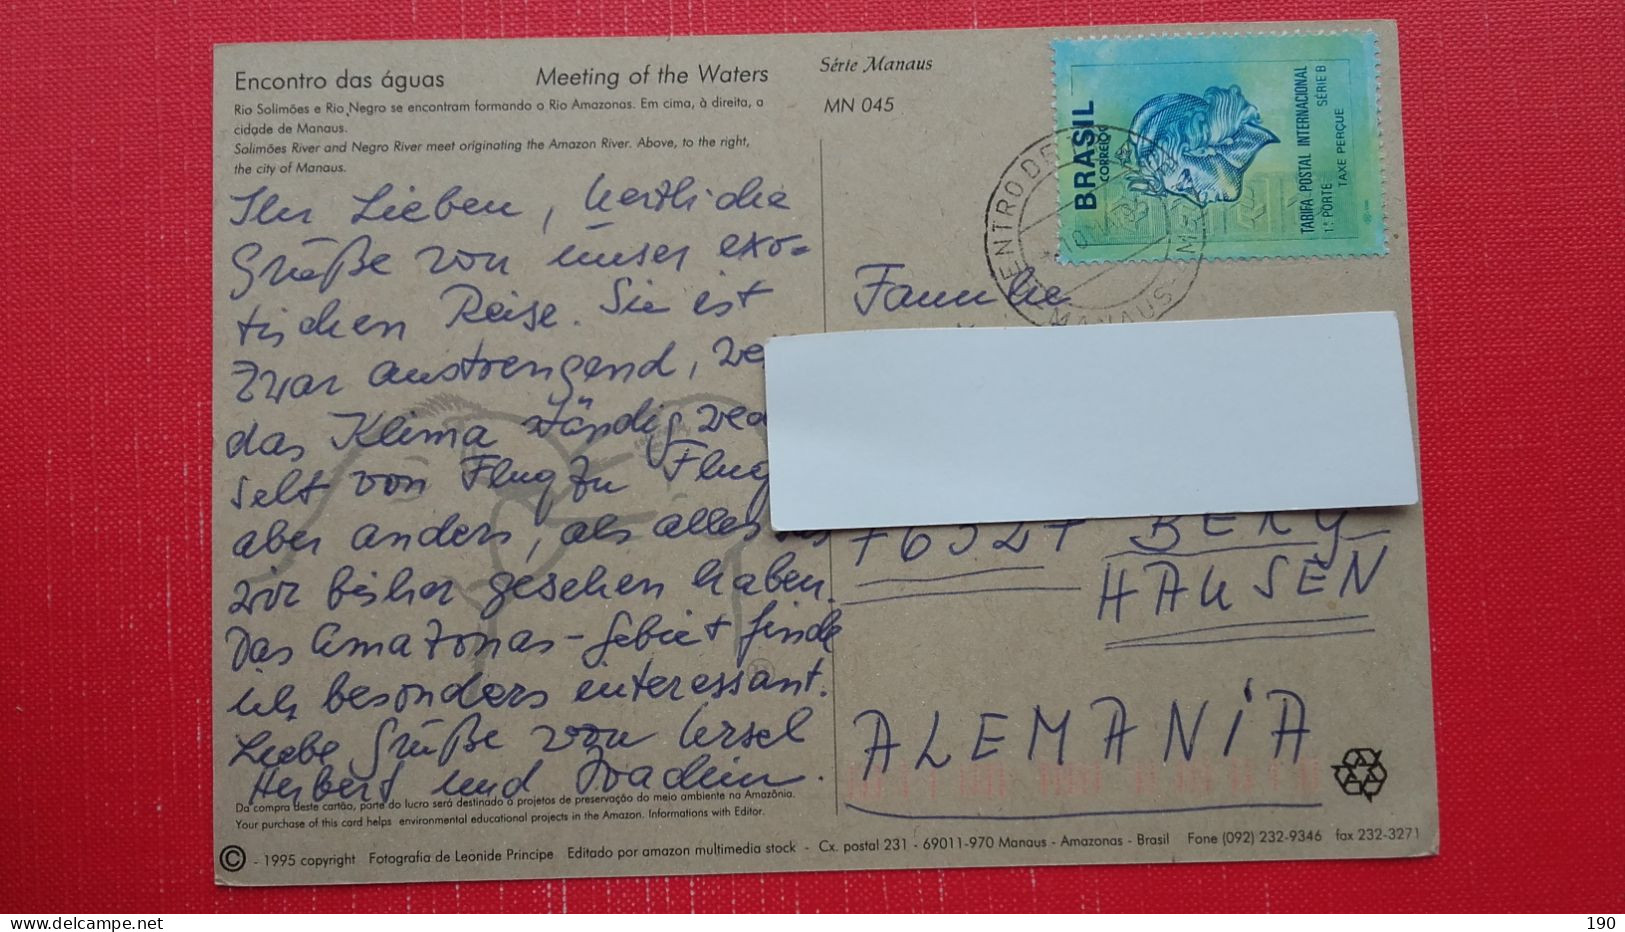 Encontro das águas Meeting of the Waters
Rio Solimões e Rio Negro se encontram formando o Rio Amazonas. Em cima, à direita, a
cidade de Manaus.
Solimões River and Negro River meet originating the Amazon River. Above, to the right,
the city of Manaus.
Ihr Lieben, herzliche
Grüße von unser exo=
tischen Reise. Sie ist
zwar anstrengend,
das Klima ständig
selt von Flug zu Flug
aber anders, als alles
wir bisher gesehen haben.
Das Amazonas-Gebiet finde
ich besonders interessant.
Liebe Grüße von Ursel
Herbert und Joachim.
Da compra deste cartão, parte do lucro será destinado a projetos de preservação do meio ambiente na Amazônia.
Your purchase of this card helps environmental educational projects in the Amazon. Informations with Editor.
© - 1995 copyright Fotografia de Leonide Principe Editado por amazon multimedia stock - Cx. postal 231 - 69011-970 Manaus - Amazonas - Brasil Fone (092) 232-9346 fax 232-3271
Série Manaus
MN 045
BRASIL
CORREIO
TARIFA POSTAL INTERNACIONAL
1º PORTE SÉRIE B
TAXE PERÇUE
CENTRO DE
MANAUS
Familie
76327 BERG
HAUSEN
ALEMANIA
190